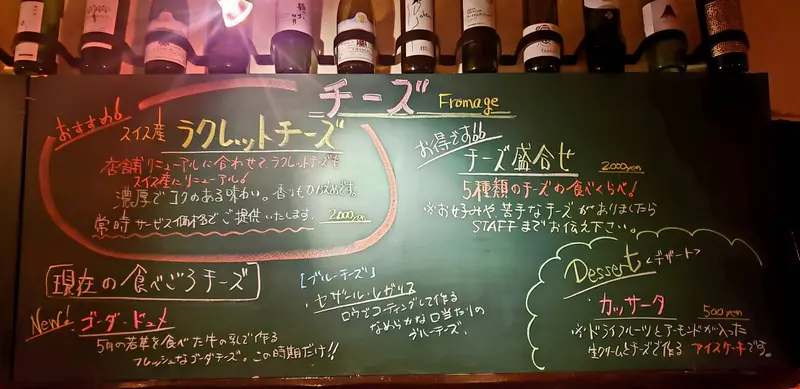 チーズ Fromage
おすすめ!
スイス産 ラクレットチーズ
店舗リニューアルに合わせて、ラクレットチーズも
スイス産にリニューアル!
濃厚でコクのある味わい。香りもひかえめです。
常時サービス価格でご提供いたします。 2,000yen
お得です!!
チーズ盛合せ 2,000yen
5種類のチーズの食べくらべ!
※お好みや、苦手なチーズがありましたら
STAFFまでお伝え下さい。
現在の食べごろチーズ
New! ゴーダ・ドゥメ
5月の若草を食べた牛の乳で作る
フレッシュなゴーダチーズ。この時期だけ!!
[ブルーチーズ]
・セザール・レガリス
ロウでコーティングして作る
なめらかな口当たりの
ブルーチーズ。
Dessert <デザート>
カッサータ 500yen
※ドライフルーツとアーモンドが入った
生クリームとチーズで作る アイスケーキです。